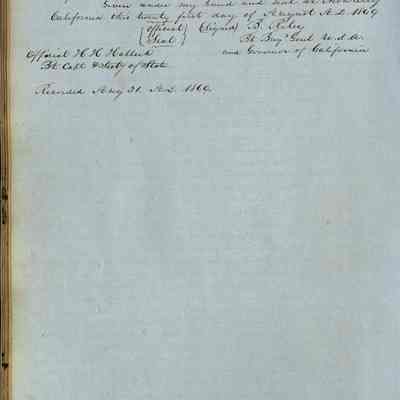 Given under my hand and seal at Monterey
California this twenty first day of August A.D. 1849
{Official Seal} (Signed) B. Riley
Bt. Brig. Genl U.S.A.
and Governor of California
Official H. H. Halleck
Bt. Capt & Secty of State
Recorded Aug 21. A.D. 1849.